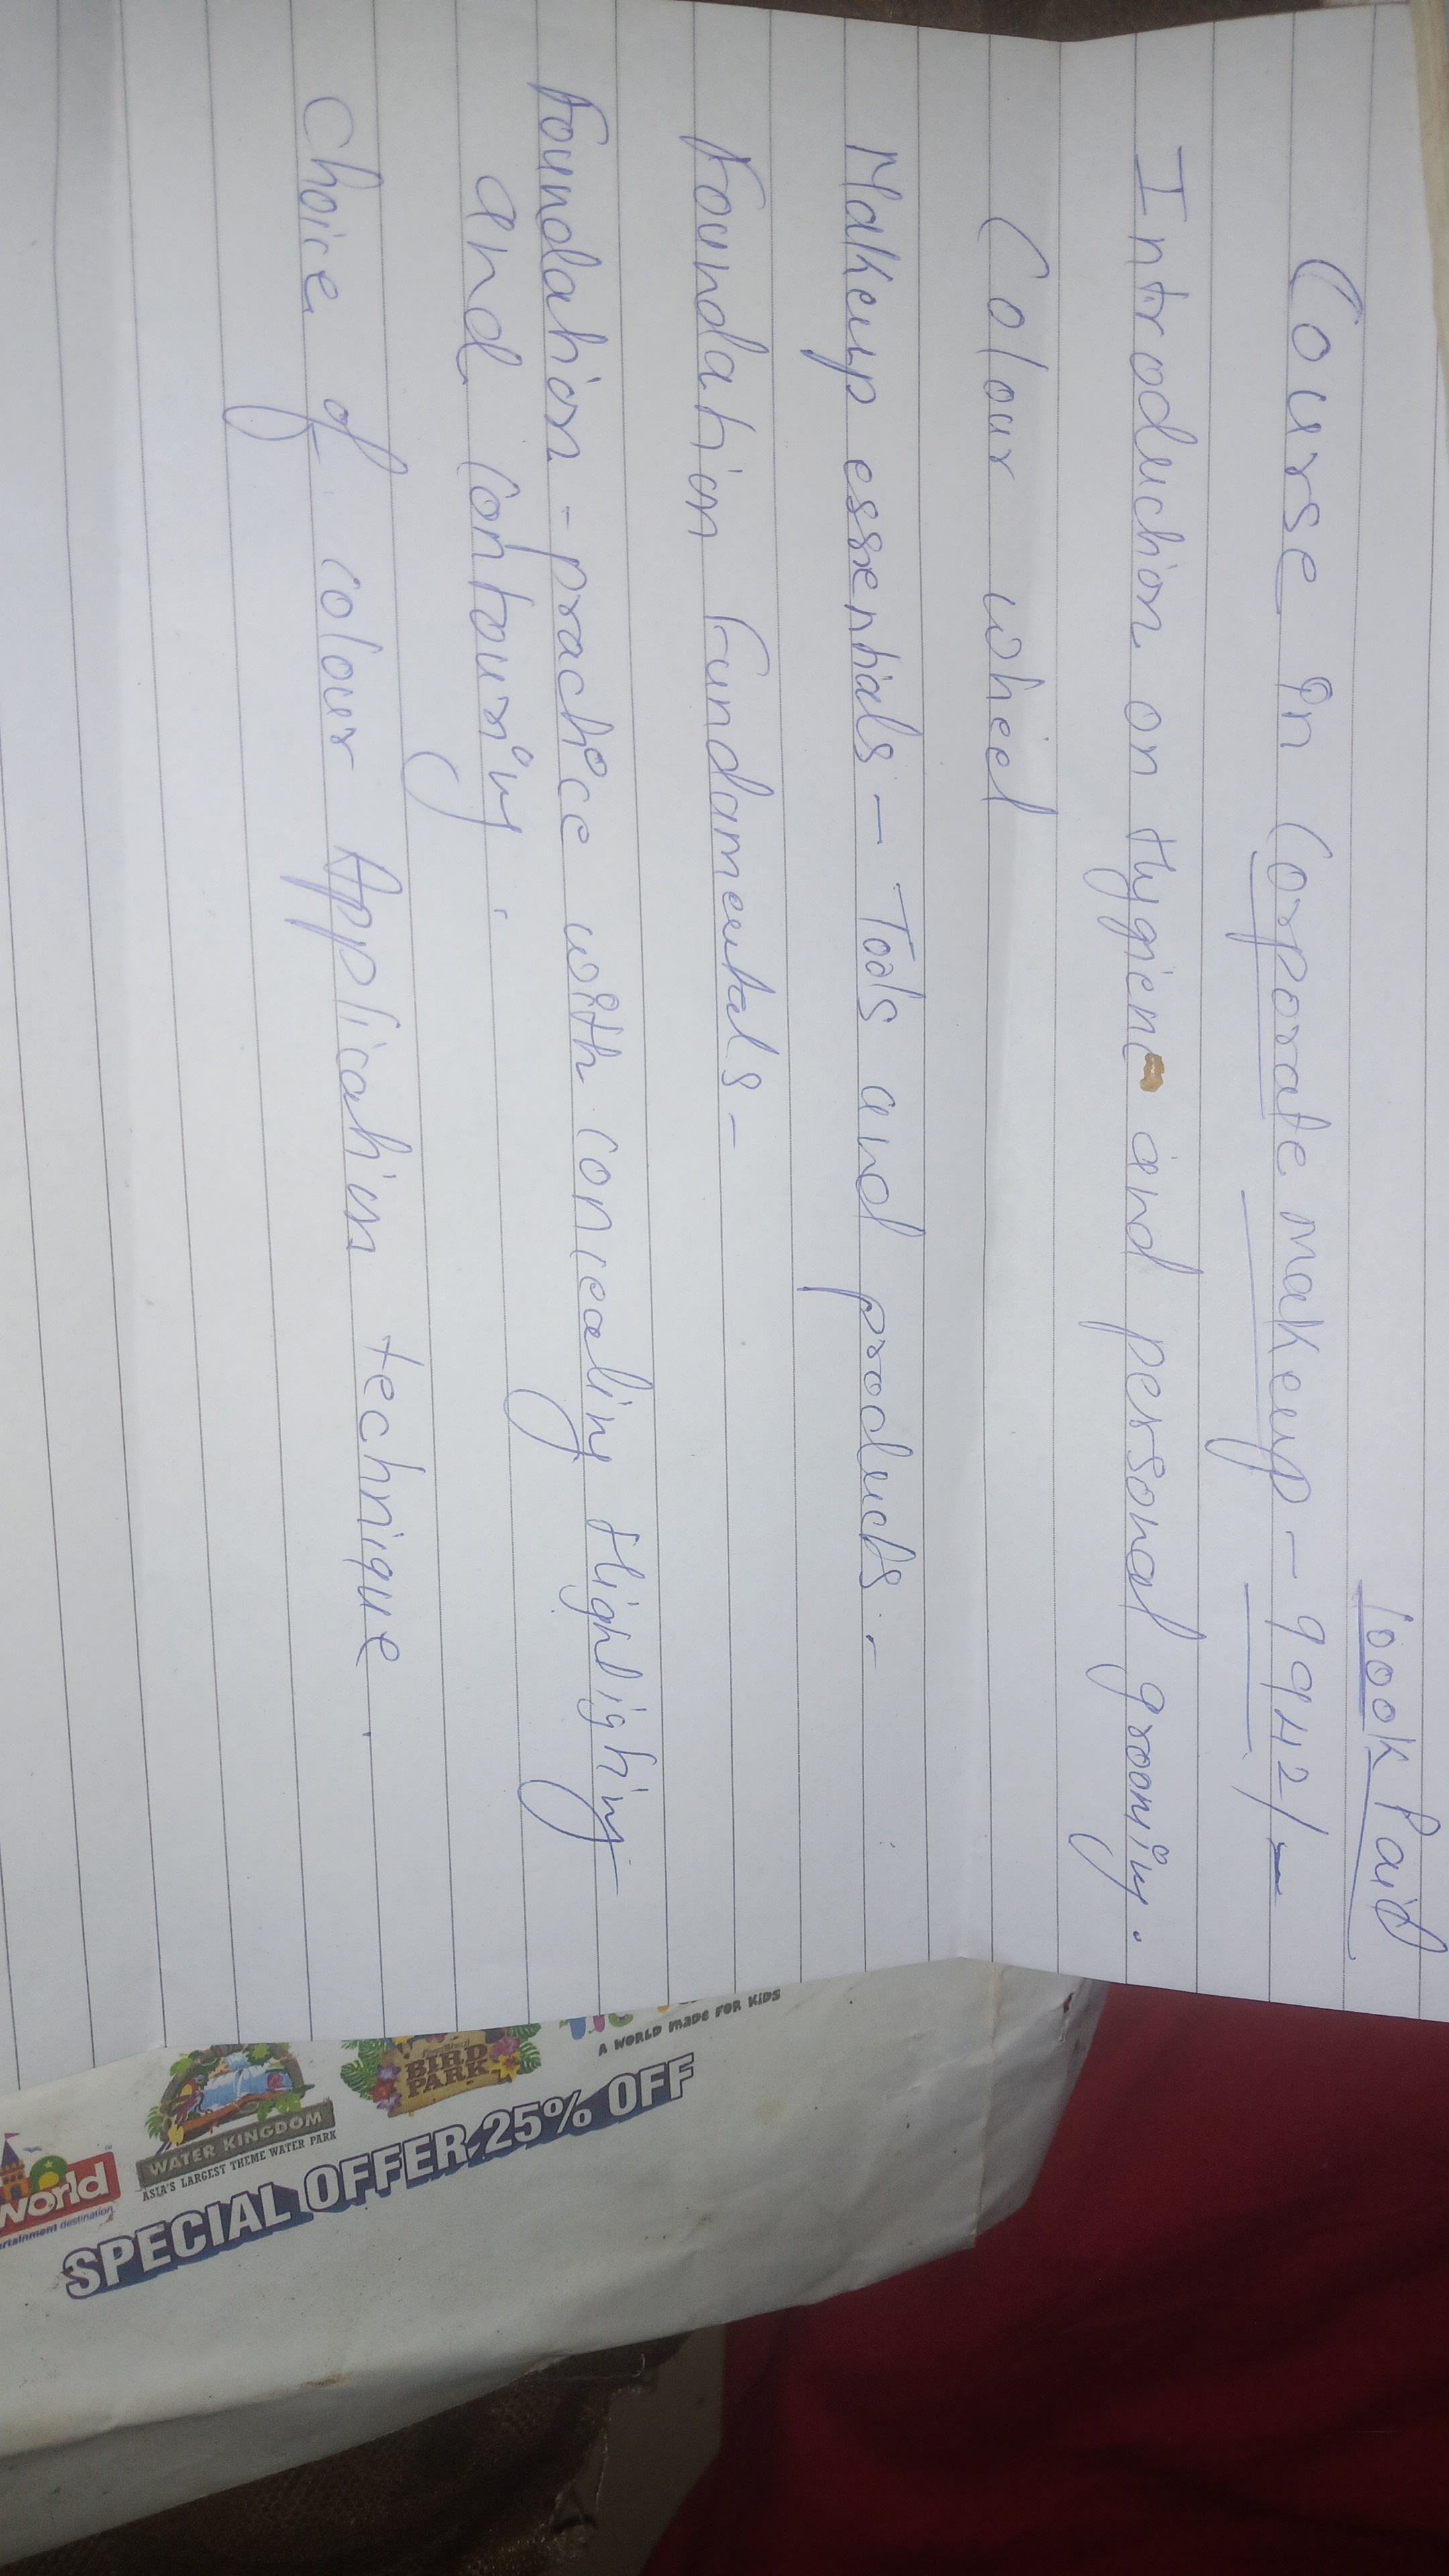 look Paid
Course in Corporate makeup - 9942/-
Introduction on Hygiene and personal grooming.
Colour wheel
Makeup essentials - Tools and products.
Foundation Fundamentals -
Foundation - practice with concealing Highlighting
and contouring.
Choice of colour Application technique.
A WORLD MADE FOR KIDS
BIRD PARK
WATER KINGDOM
ASIA'S LARGEST THEME WATER PARK
World
SPECIAL OFFER 25% OFF